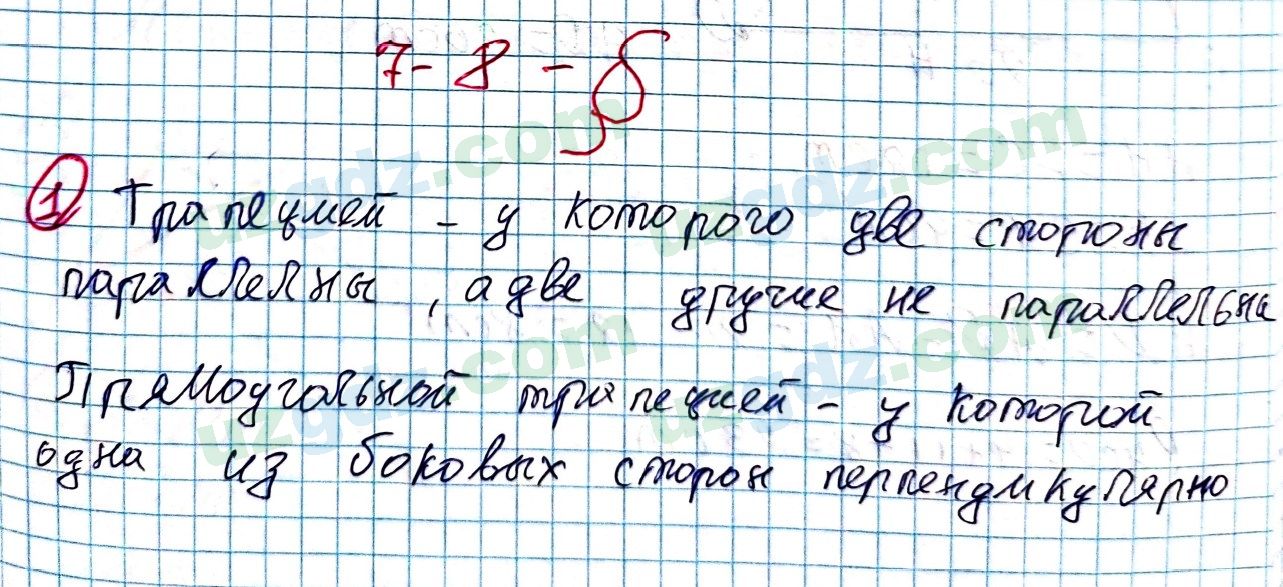 7-8-§
① Трапецией - у которого две стороны
параллелны, а две другие не параллельны
Прямоугольной трапецией - у которой
одна из боковых сторон перпендикулярно
uzgdz.com uzgdz.com
uzgdz.com uzgdz.com